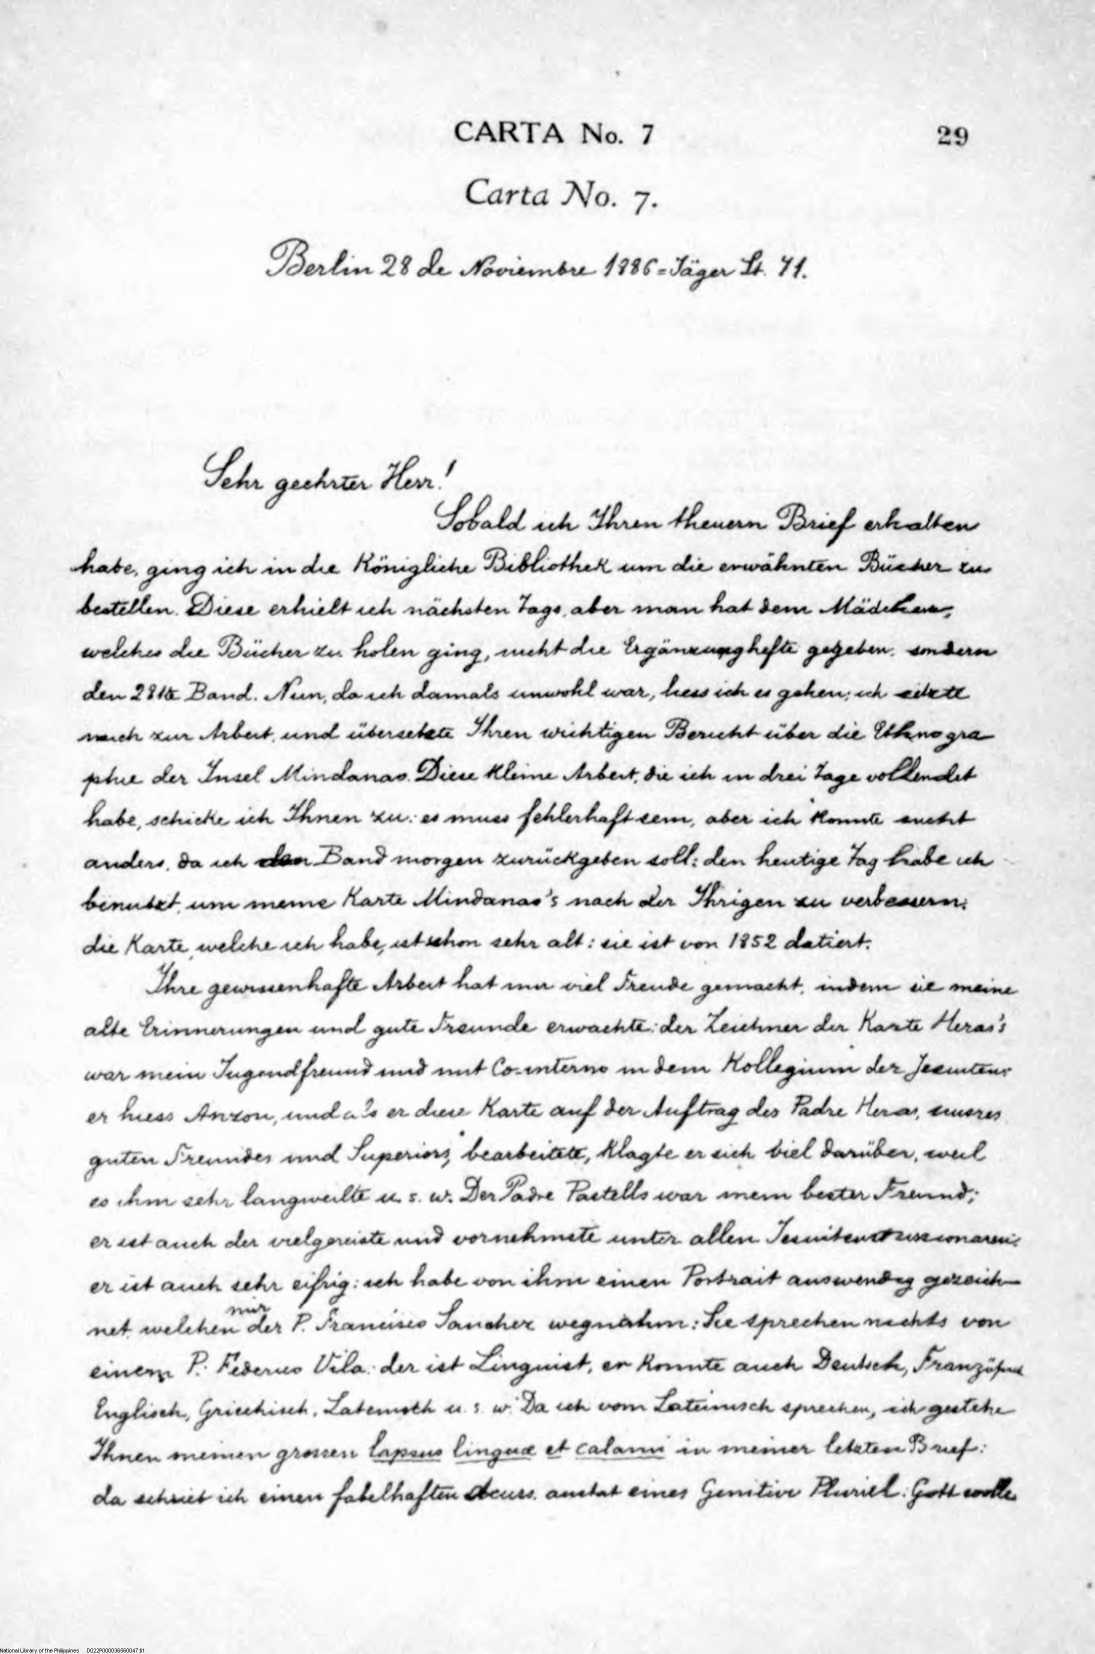 CARTA No. 7 29
Carta No. 7.
Berlin 28 de Noviembre 1886 = Jäger St. 71.
Sehr geehrter Herr!
Sobald ich Ihren theuern Brief erhalten
habe, ging ich in die Königliche Bibliothek um die erwähnten Bücher zu
bestellen. Diese erhielt ich nächsten Tags, aber man hat dem Mädchen,
welches die Bücher zu holen ging, nicht die Ergänzungshefte gegeben, sondern
den 28te Band. Nun, da ich damals unwohl war, liess ich es gehen; ich setzte
mich zur Arbeit, und übersetzte Ihren wichtigen Bericht über die Ethnogra
phie der Insel Mindanao. Diese kleine Arbeit, die ich in drei Tage vollendet
habe, schicke ich Ihnen zu: es muss fehlerhaft sein, aber ich konnte nicht
anders, da ich den Band morgen zurückgeben soll; den heutige Tag habe ich
benutzt, um meine Karte Mindanao's nach der Ihrigen zu verbessern;
die Karte, welche ich habe, ist schon sehr alt: sie ist von 1852 datiert.
Ihre gewissenhafte Arbeit hat mir viel Freude gemacht, indem sie meine
alte Erinnerungen und gute Freunde erwachte: der Zeichner der Karte Heras's
war mein Jugendfreund und mit Co-interno in dem Kollegium der Jesuiten;
er hiess Anzon, und als er diese Karte auf der Auftrag des Padre Heras, unsres
guten Freundes und Superiors, bearbeitete, klagte er sich viel darüber, weil
es ihm sehr langweilte u. s. w. Der Padre Pastells war mein bester Freund;
er ist auch der vielgereiste und vornehmste unter allen Jesuitenmissionaren;
er ist auch sehr eifrig: ich habe von ihm einen Portrait auswendig gezeich-
net welchen mir der P. Francisco Sanchez wegnahm: Sie sprechen nichts von
einem P. Federico Vila: der ist Linguist, er konnte auch Deutsch, Französisch
Englisch, Griechisch, Lateinisch u. s. w. Da ich vom Lateinisch sprechen, ich gestehe
Ihnen meinen grossen lapsus linguæ et calami in meiner letzten Brief:
da schrieb ich einen fabelhaften anstat eines Genitiv Pluriel: Gott wolle